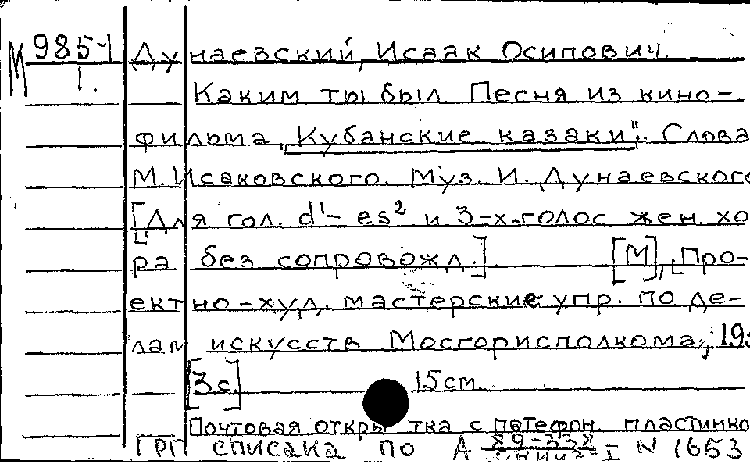 М 985-1 Дунаевский, Исаак Осипович.
1. Каким ты был Песня из кино-
фильма „Кубанские казаки". Слова
М. Исаковского. Муз. И. Дунаевского
[Для гол. d¹- es² и 3-х-голос жен хо
ра без сопровожд.] [М], „Про-
ектно-худ. мастерские упр. по де-
лам искусств Мосгорисполкома„, 195
[3с.] 15см.
Почтовая открытка с патефон. пластинко
ГРП списака по А I N 1653